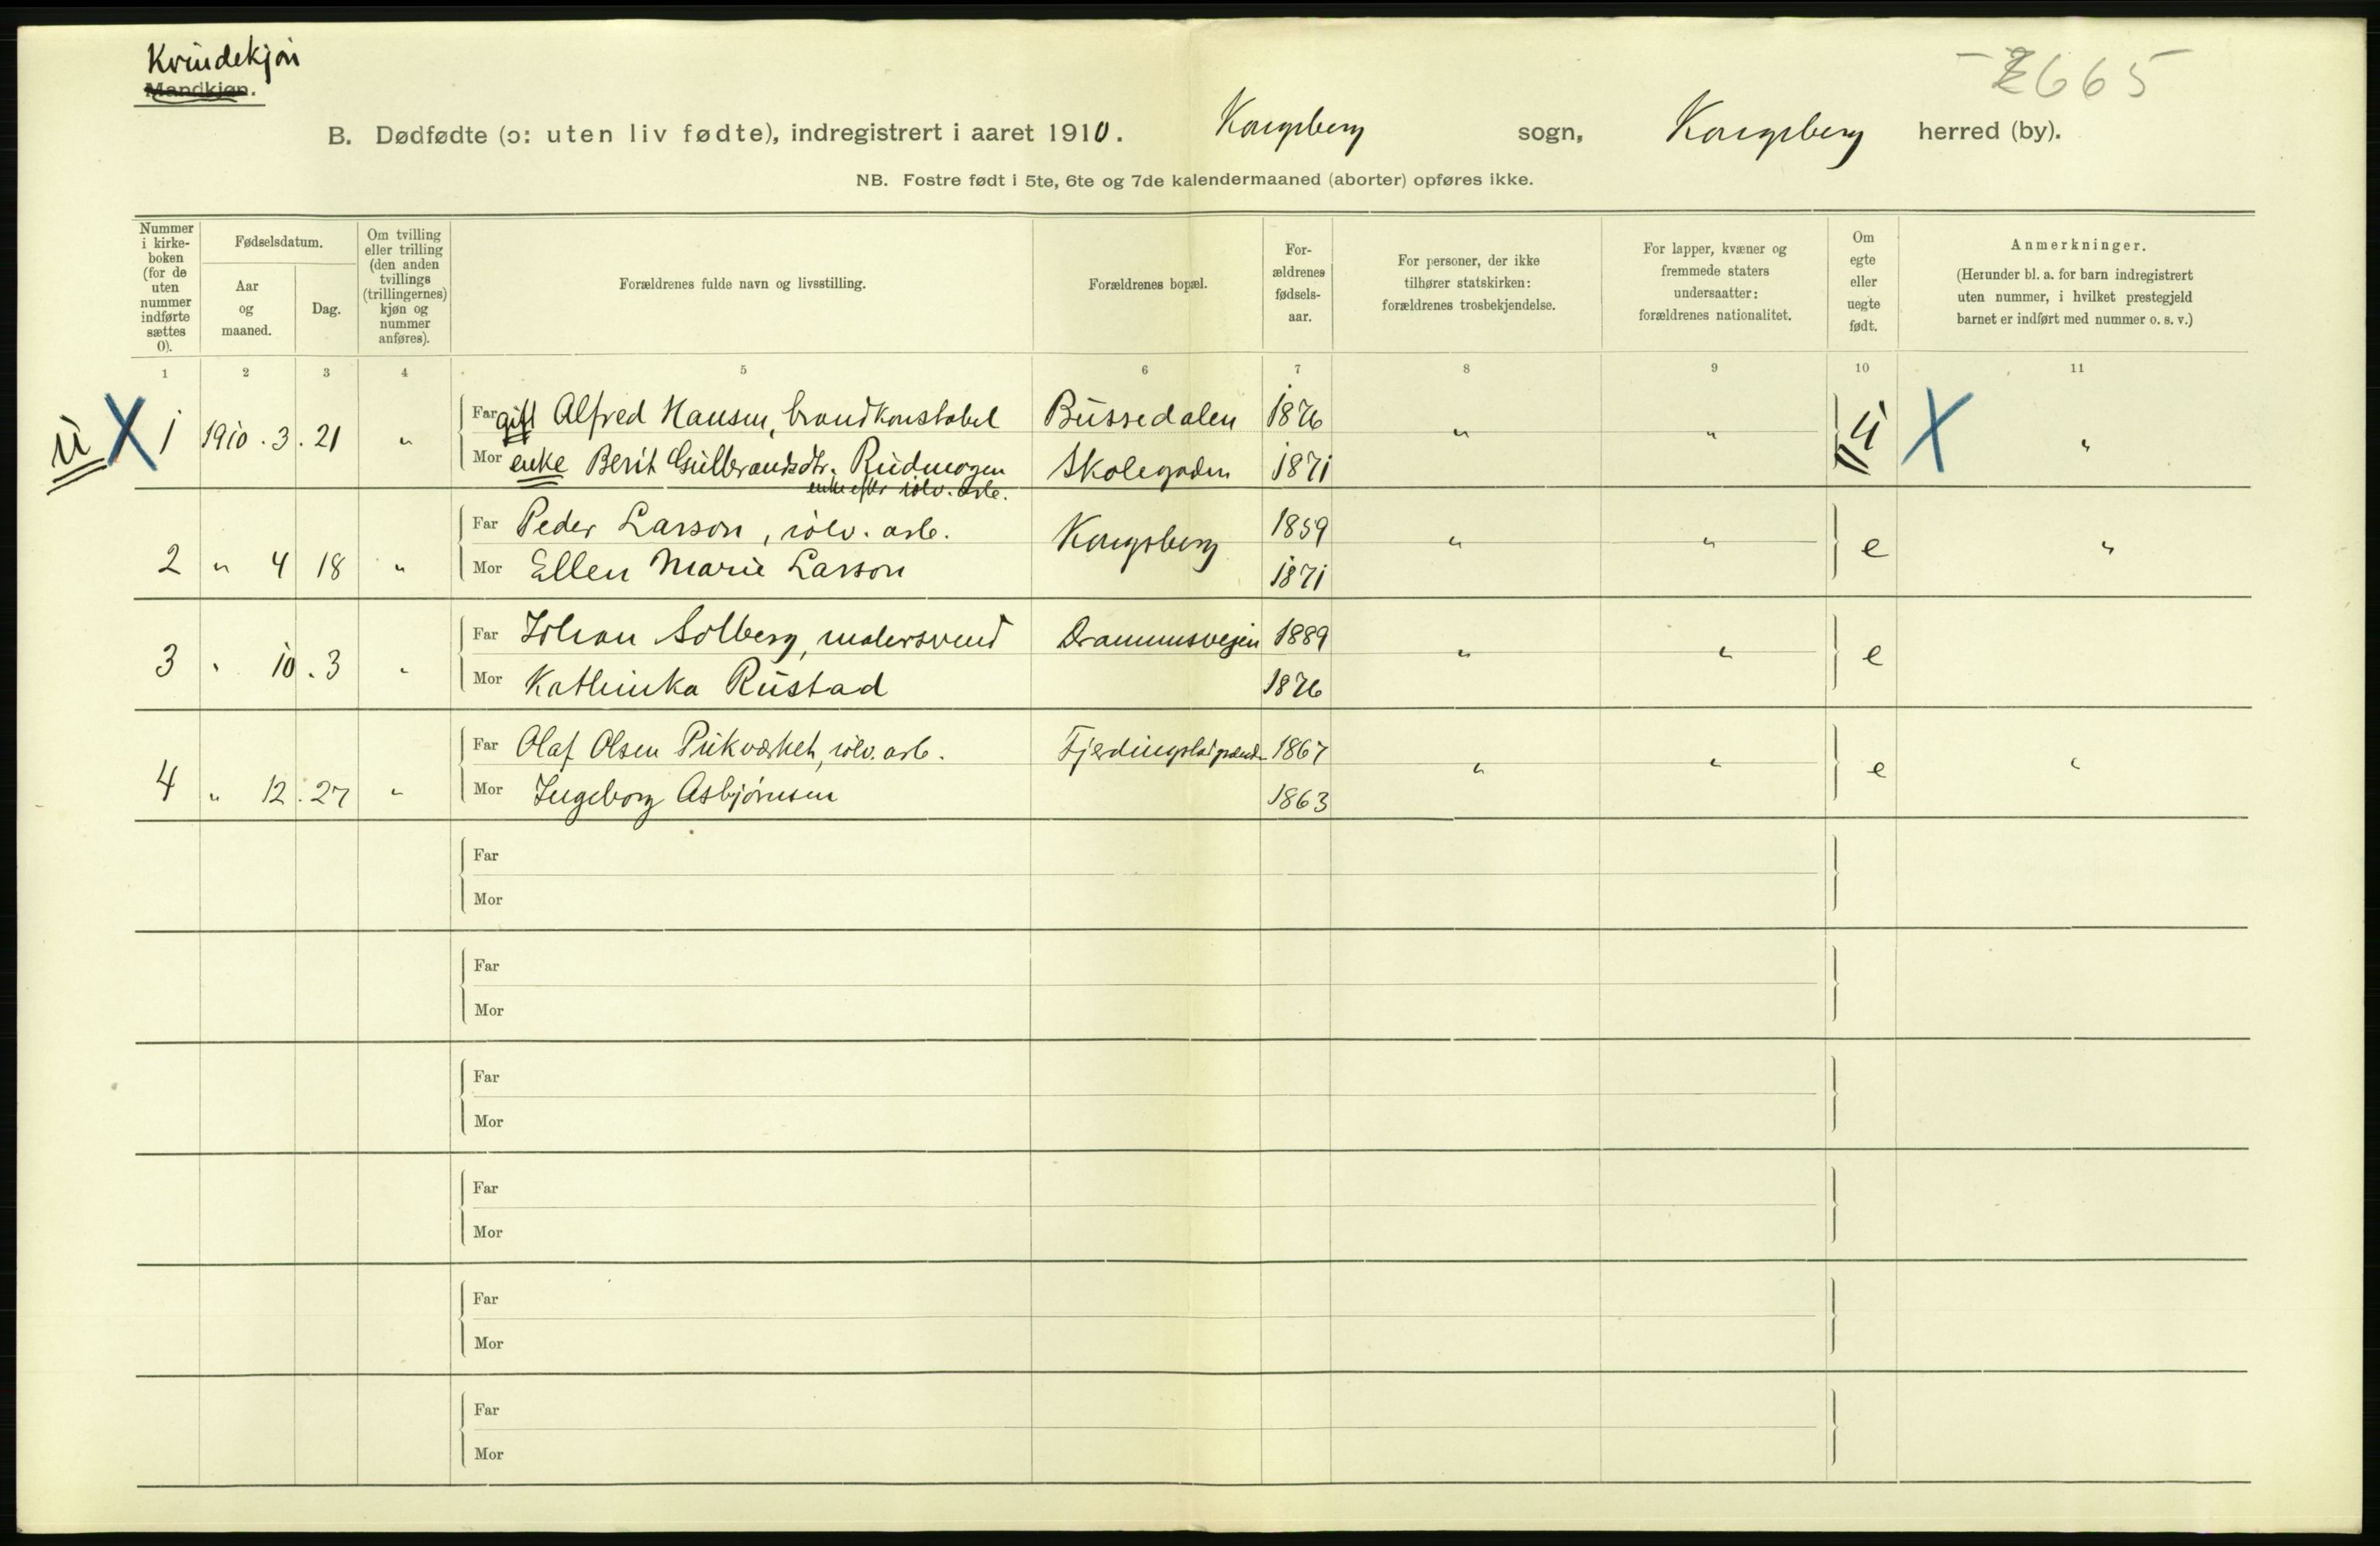 Kvindekjøn
Mandkjøn.
665
B. Dødfødte (ɔ: uten liv fødte), indregistrert i aaret 1910. Kongsberg sogn, Kongsberg herred (by).
NB. Fostre født i 5te, 6te og 7de kalendermaaned (aborter) opføres ikke.
Nummer i kirke-boken (for de uten nummer indførte sættes 0).
Fødselsdatum.
Aar og maaned.
Dag.
Om tvilling eller trilling (den anden tvillings (trillingernes) kjøn og nummer anføres).
Forældrenes fulde navn og livsstilling.
Forældrenes bopæl.
For-ældrenes fødsels-aar.
For personer, der ikke tilhører statskirken: forældrenes trosbekjendelse.
For lapper, kvæner og fremmede staters undersaatter: forældrenes nationalitet.
Om egte eller uegte født.
Anmerkninger.
(Herunder bl. a. for barn indregistrert uten nummer, i hvilket prestegjeld barnet er indført med nummer o. s. v.)
1 2 3 4 5 6 7 8 9 10 11
u X 1 1910. 3. 21 " Far gift Alfred Hansen, brandkonstabel Bussedalen 1876 " " u X "
Mor enke Berit Gulbrandsdtr. Rudmogen Skolegaden 1871
enke efter sølv. arb.
Far Peder Larson, sølv. arb. Kongsberg 1859 " " e "
2 " 4 18 " Mor Ellen Marie Larson 1871
Far Johan Solberg, malersvend Drammensvejen 1889 " " e
3 " 10. 3 " Mor Kathinka Rustad 1876
Far Olaf Olsen Pukværket, sølv. arb. 1867 " " e "
4 " 12. 27 " Mor Ingeborg Asbjørnsen 1863
Far
Mor
Far
Mor
Far
Mor
Far
Mor
Far
Mor
Far
Mor